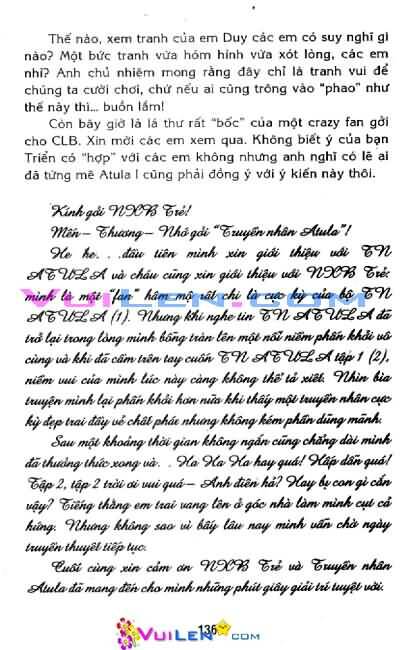 Thế nào, xem tranh của em Duy các em có suy nghĩ gì
nào? Một bức tranh vừa hóm hỉnh vừa xót lòng, các em
nhỉ? Anh chủ nhiệm mong rằng đây chỉ là tranh vui để
chúng ta cười chơi, chứ nếu ai cũng trông vào "phao" như
thế này thì... buồn lắm!
Còn bây giờ là lá thư rất "bốc" của một crazy fan gởi
cho CLB. Xin mời các em xem qua. Không biết ý của bạn
Triển có "hợp" với các em không nhưng anh nghĩ có lẽ ai
đã từng mê Atula I cũng phải đồng ý với ý kiến này thôi.
Kính gởi NXB Trẻ!
Mến - Thương - Nhớ gởi "Truyền nhân Atula"!
He he... đầu tiên mình xin giới thiệu với TN
ATULA và cháu cũng xin giới thiệu với NXB Trẻ:
mình là một "fan" hâm mộ rất chi là cực kỳ của bộ TN
ATULA (1). Nhưng khi nghe tin TN ATULA đã
trở lại trong lòng mình bỗng tràn lên một nỗi niềm phấn khởi vô
cùng và khi đã cầm trên tay cuốn TN ATULA tập 1 (2),
niềm vui của mình lúc này càng không thể tả xiết. Nhìn bìa
truyện mình lại phấn khởi hơn nữa khi thấy một truyền nhân cực
kỳ đẹp trai đầy vẻ chất phác nhưng không kém phần dũng mãnh.
Sau một khoảng thời gian không ngắn cũng chẳng dài mình
đã thưởng thức xong và. . Ha Ha Ha hay quá! Hấp dẫn quá!
Tập 2, tập 2 trời ơi vui quá - Anh điên hả? Hay bị con gì cắn
vậy? Tiếng thằng em trai vang lên ở góc nhà làm mình cụt cả
hứng. Nhưng không sao vì bấy lâu nay mình vẫn chờ ngày
truyền thuyết tiếp tục.
Cuối cùng xin cảm ơn NXB Trẻ và Truyền nhân
Atula đã mang đến cho mình những phút giây giải trí tuyệt vời.
136
VUILEN.COM